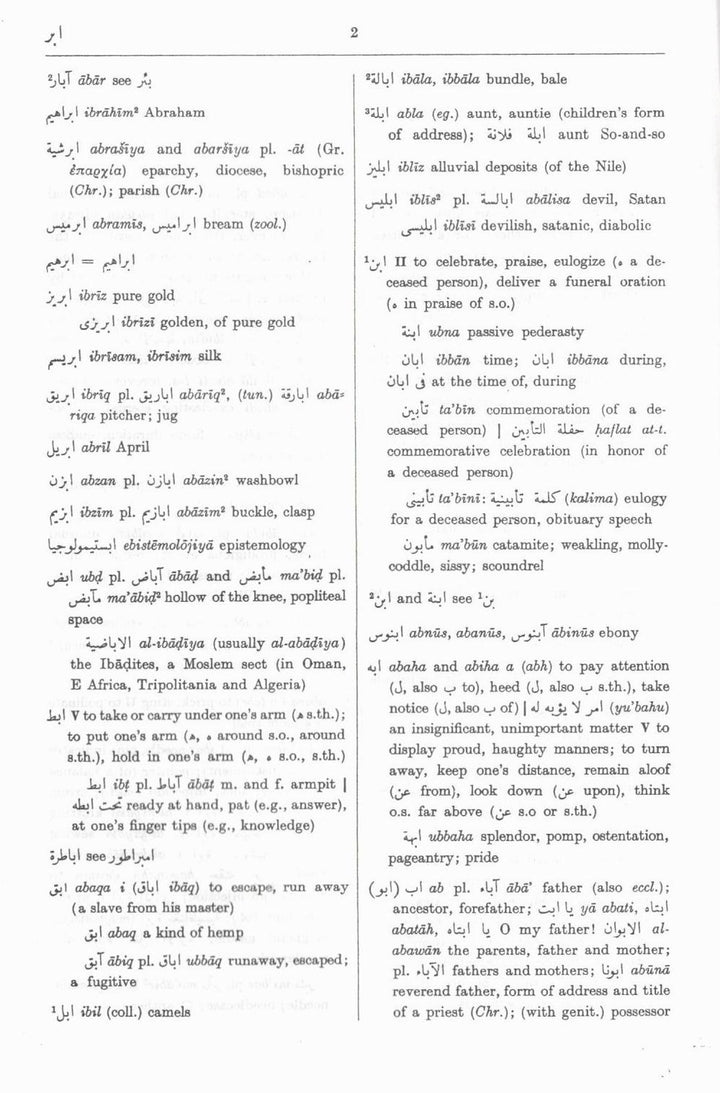 ابر
2
آبار² ābār see بئر
ابراهيم ibrāhīm² Abraham
ابرشية abrašīya and abaršīya pl. -āt (Gr.
ἐπαρχία) eparchy, diocese, bishopric
(Chr.); parish (Chr.)
ابرميس abramīs, ابراميس bream (zool.)
ابراهيم = ابرهيم
ابريز ibrīz pure gold
ابريزى ibrīzī golden, of pure gold
ابريسم ibrīsam, ibrīsim silk
ابريق ibrīq pl. اباريق abārīq², (tun.) ابارقة abā=
riqa pitcher; jug
ابريل abrīl April
ابزن abzan pl. ابازن abāzin² washbowl
ابزيم ibzīm pl. ابازيم abāzīm² buckle, clasp
ابستيمولوجيا ebistēmolōjiyā epistemology
ابض ubḍ pl. آباض ābāḍ and مأبض ma'biḍ pl.
مآبض ma'ābiḍ² hollow of the knee, popliteal
space
الاباضية al-ibāḍīya (usually al-abāḍīya)
the Ibāḍites, a Moslem sect (in Oman,
E Africa, Tripolitania and Algeria)
ابط V to take or carry under one's arm (ه s.th.);
to put one's arm (ه, ه around s.o., around
s.th.), hold in one's arm (ه, ه s.o., s.th.)
ابط ibṭ pl. آباط ābāṭ m. and f. armpit |
تحت ابطه ready at hand, pat (e.g., answer),
at one's finger tips (e.g., knowledge)
اباطرة see امبراطور
ابق abaqa i (اباق ibāq) to escape, run away
(a slave from his master)
ابق abaq a kind of hemp
آبق ābiq pl. اباق ubbāq runaway, escaped;
a fugitive
ابل¹ ibil (coll.) camels
ابالة² ibāla, ibbāla bundle, bale
ابلة³ abla (eg.) aunt, auntie (children's form
of address); ابلة فلانة aunt So-and-so
ابليز iblīz alluvial deposits (of the Nile)
ابليس iblīs² pl. ابالسة abālisa devil, Satan
ابليسى iblīsī devilish, satanic, diabolic
ابن¹ II to celebrate, praise, eulogize (ه a de-
ceased person), deliver a funeral oration
(ه in praise of s.o.)
ابنة ubna passive pederasty
ابان ibbān time; ابان ibbāna during,
فى ابان at the time of, during
تأبين ta'bīn commemoration (of a de-
ceased person) | حفلة التأبين ḥaflat at-t.
commemorative celebration (in honor of
a deceased person)
تأبينى ta'bīnī: كلمة تأبينية (kalima) eulogy
for a deceased person, obituary speech
مأبون ma'būn catamite; weakling, molly-
coddle, sissy; scoundrel
ابن² and ابنة see بن¹
ابنوس abnūs, abanūs, آبنوس ābinūs ebony
ابه abaha and abiha a (abh) to pay attention
(ل, also ب to), heed (ل, also ب s.th.), take
notice (ل, also ب of) | امر لا يؤبه له (yu'bahu)
an insignificant, unimportant matter V to
display proud, haughty manners; to turn
away, keep one's distance, remain aloof
(عن from), look down (عن upon), think
o.s. far above (عن s.o or s.th.)
ابهة ubbaha splendor, pomp, ostentation,
pageantry; pride
اب (ابو) ab pl. آباء ābā' father (also eccl.);
ancestor, forefather; يا ابت yā abati, ابتاه
abatāh, يا ابتاه O my father! الابوان al-
abawān the parents, father and mother;
pl. الآباء fathers and mothers; ابونا abūnā
reverend father, form of address and title
of a priest (Chr.); (with genit.) possessor